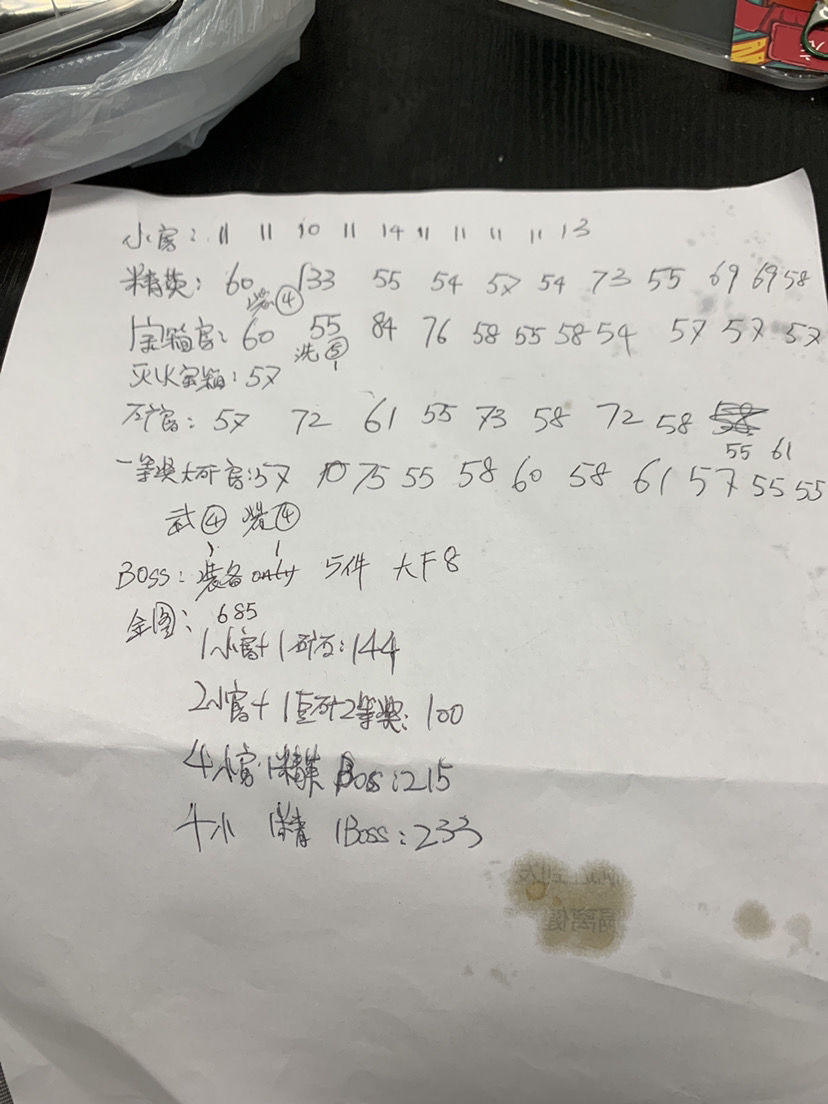 小官: 11 11 10 11 14 11 11 11 11 13
精英: 60 133 55 54 57 54 73 55 69 69 58
装④
宝箱官: 60 55 84 76 58 55 58 54 57 57 57
洗⑤
灭火宝箱: 57
石矿官: 57 72 61 55 73 58 72 58
55 61
一等奖大矿官: 57 70 75 55 58 60 58 61 57 55 55
武④ 装④
BOSS: 装备 only 5件 大F8
金图: 685
1小官+1矿石: 144
2小官+1巨矿2等奖: 100
4小官 1精英 Boss: 215
4小 1精 1Boss: 233